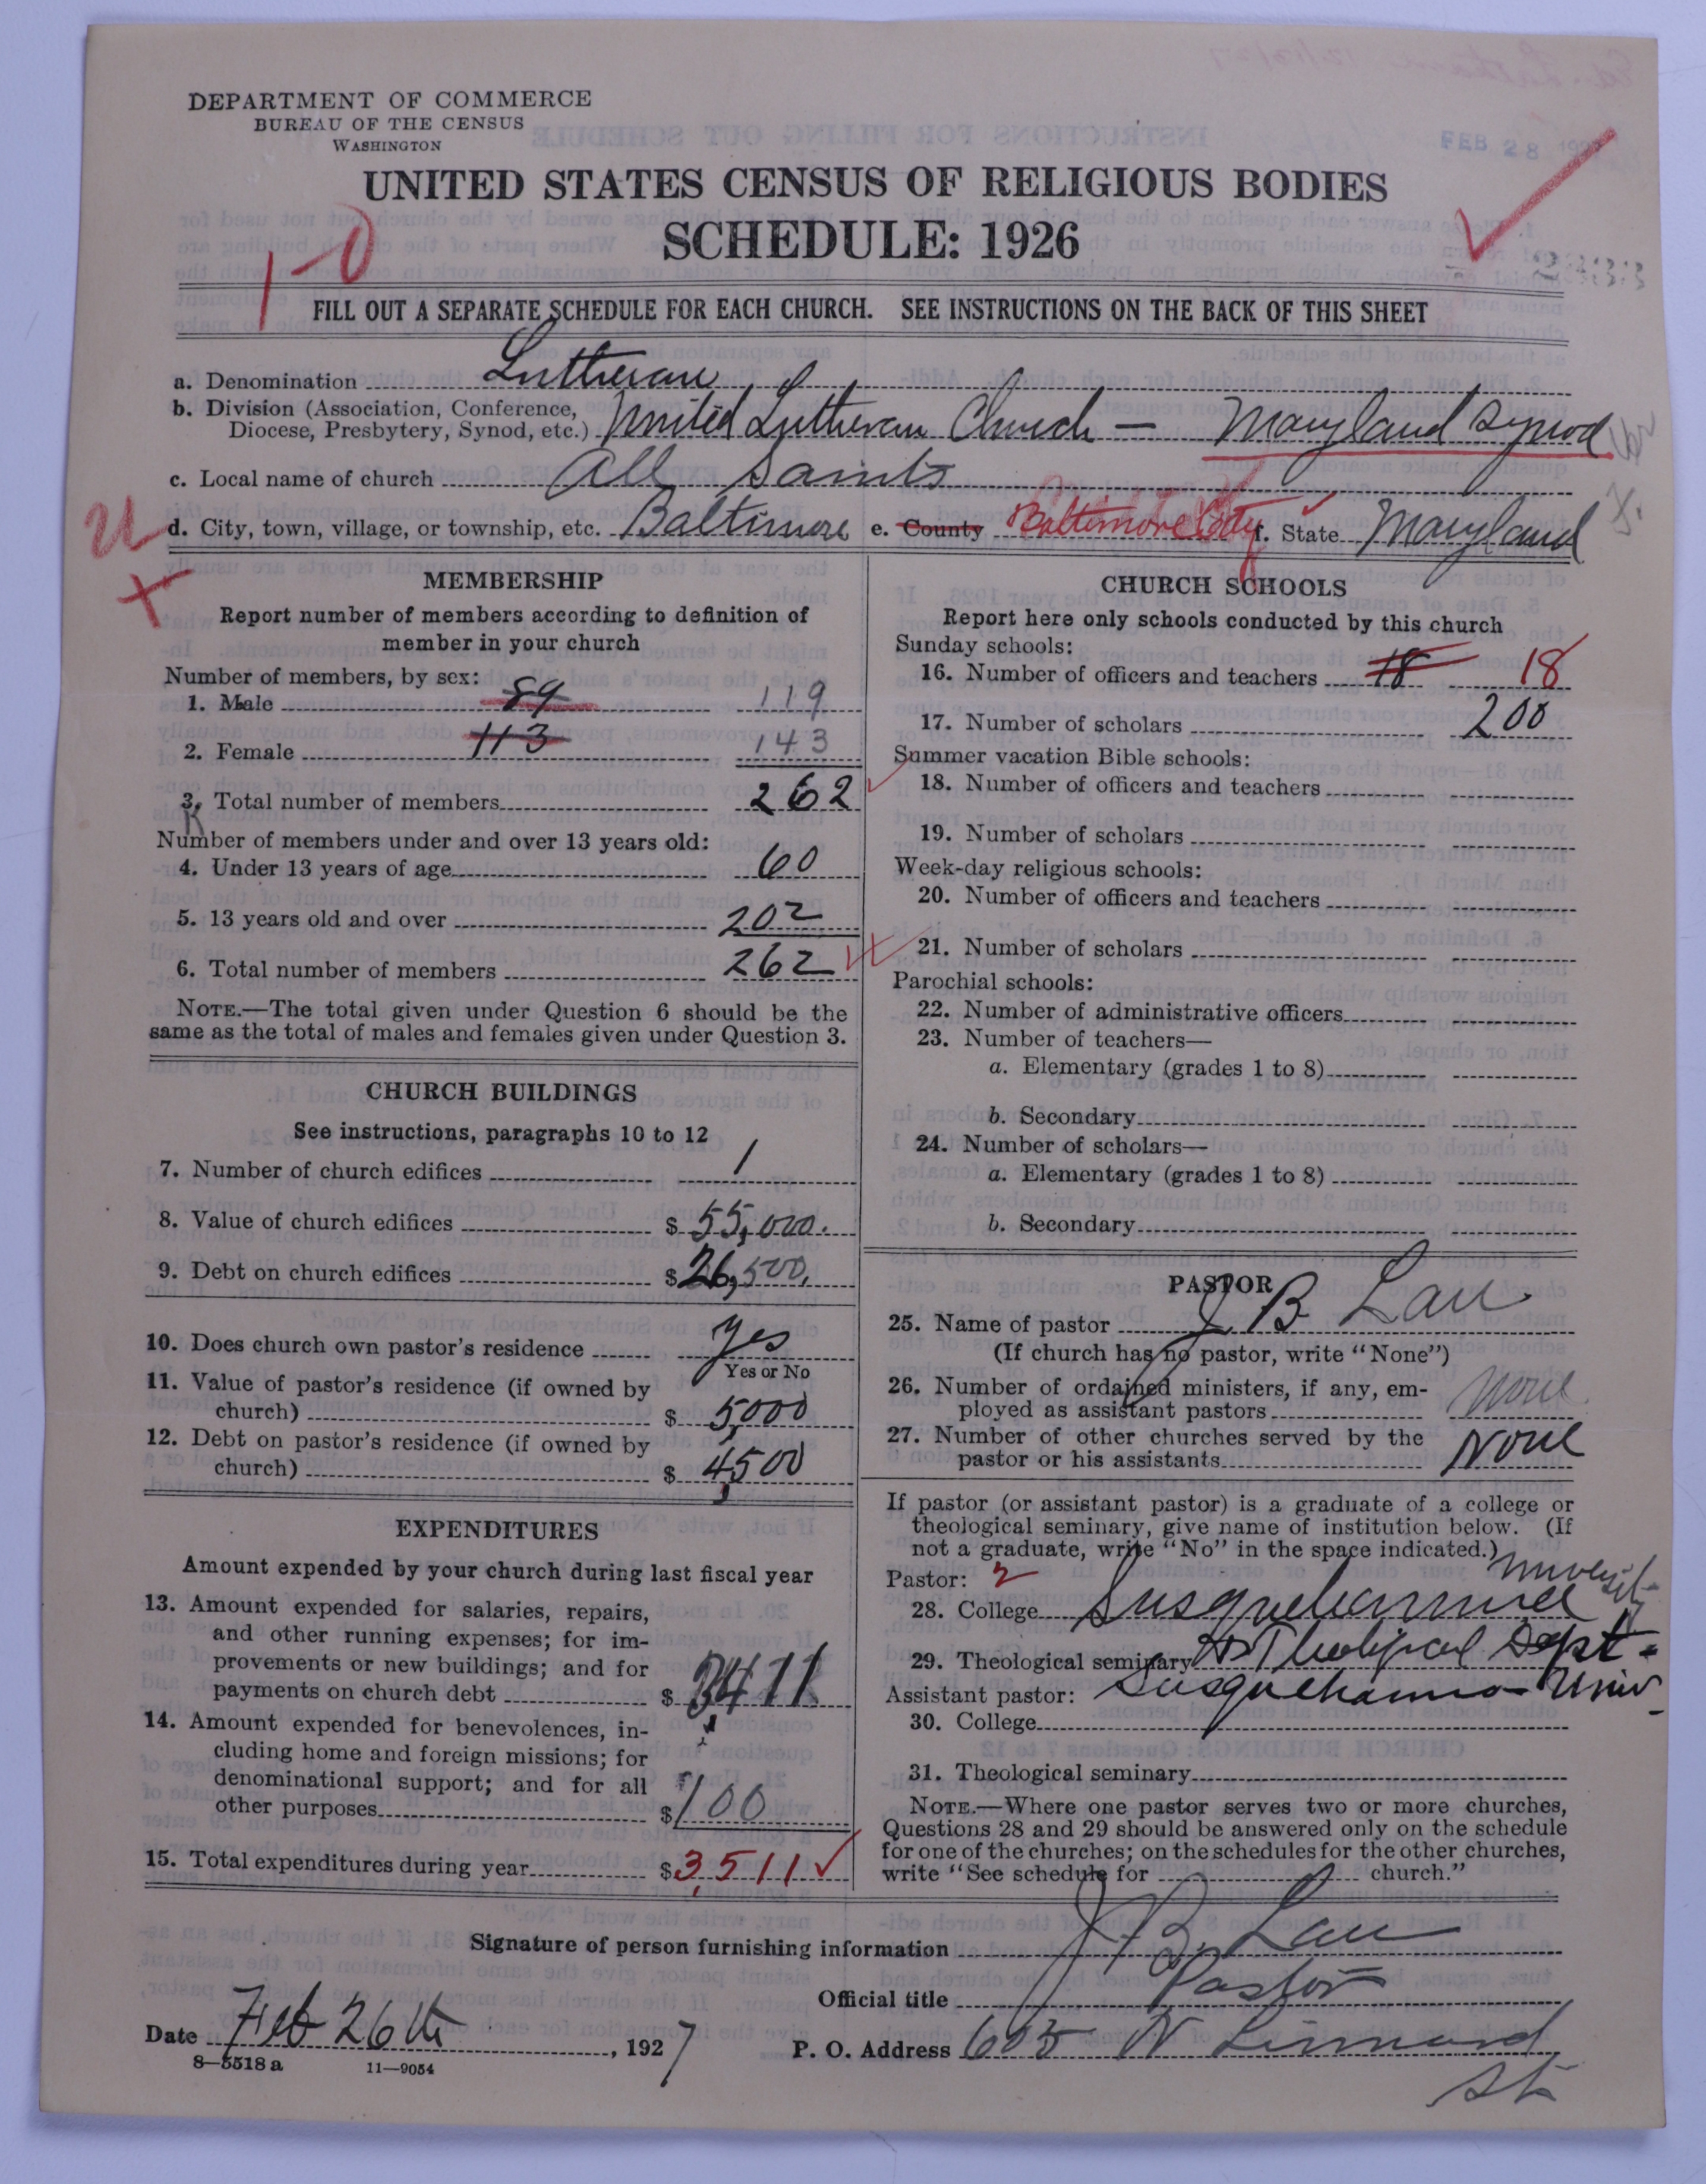 DEPARTMENT OF COMMERCE
BUREAU OF THE CENSUS
WASHINGTON
FEB 28
UNITED STATES CENSUS OF RELIGIOUS BODIES
SCHEDULE: 1926
1-0
FILL OUT A SEPARATE SCHEDULE FOR EACH CHURCH. SEE INSTRUCTIONS ON THE BACK OF THIS SHEET
a. Denomination Lutheran
b. Division (Association, Conference,
Diocese, Presbytery, Synod, etc.) United Lutheran Church — Maryland Synod
c. Local name of church All Saints
d. City, town, village, or township, etc. Baltimore e. County Baltimore City f. State Maryland
MEMBERSHIP
Report number of members according to definition of
member in your church
Number of members, by sex:
1. Male 89 119
2. Female 113 143
3. Total number of members 262
Number of members under and over 13 years old:
4. Under 13 years of age 60
5. 13 years old and over 202
6. Total number of members 262
NOTE.—The total given under Question 6 should be the
same as the total of males and females given under Question 3.
CHURCH BUILDINGS
See instructions, paragraphs 10 to 12
7. Number of church edifices 1
8. Value of church edifices $ 55,000.
9. Debt on church edifices $ 26,500.
10. Does church own pastor's residence Yes
Yes or No
11. Value of pastor's residence (if owned by
church) $ 5,000
12. Debt on pastor's residence (if owned by
church) $ 4,500
EXPENDITURES
Amount expended by your church during last fiscal year
13. Amount expended for salaries, repairs,
and other running expenses; for im-
provements or new buildings; and for
payments on church debt $ 3411
14. Amount expended for benevolences, in-
cluding home and foreign missions; for
denominational support; and for all
other purposes $ 100
15. Total expenditures during year $ 3,511
CHURCH SCHOOLS
Report here only schools conducted by this church
Sunday schools:
16. Number of officers and teachers 18 18
17. Number of scholars 200
Summer vacation Bible schools:
18. Number of officers and teachers
19. Number of scholars
Week-day religious schools:
20. Number of officers and teachers
21. Number of scholars
Parochial schools:
22. Number of administrative officers
23. Number of teachers—
a. Elementary (grades 1 to 8)
b. Secondary
24. Number of scholars—
a. Elementary (grades 1 to 8)
b. Secondary
PASTOR
25. Name of pastor J B Lau
(If church has no pastor, write "None")
26. Number of ordained ministers, if any, em-
ployed as assistant pastors None
27. Number of other churches served by the
pastor or his assistants None
If pastor (or assistant pastor) is a graduate of a college or
theological seminary, give name of institution below. (If
not a graduate, write "No" in the space indicated.)
Pastor: 2
28. College Susquehanna University
29. Theological seminary Theological Dept.
Assistant pastor: Susquehanna Univ
30. College
31. Theological seminary
NOTE.—Where one pastor serves two or more churches,
Questions 28 and 29 should be answered only on the schedule
for one of the churches; on the schedules for the other churches,
write "See schedule for church."
Signature of person furnishing information J B Lau
Official title Pastor
Date Feb 26th, 1927
P. O. Address 605 N Linwood
St
8—5518 a 11—9054